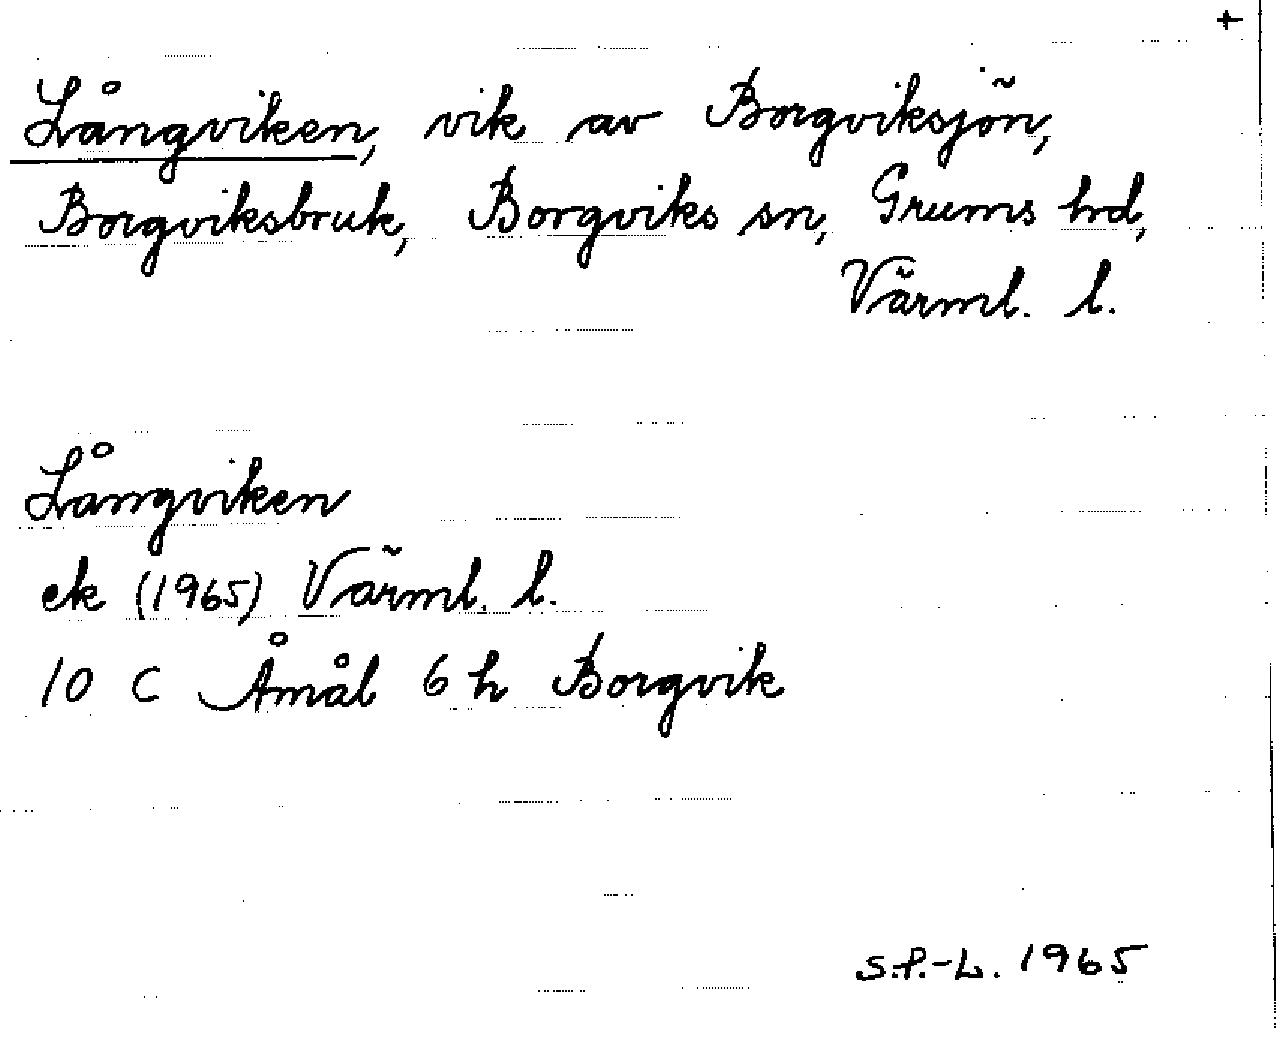 +
Långviken, vik av Borgviksjön,
Borgviksbruk, Borgviks sn, Grums hrd,
Värml. l.
Långviken
ek (1965) Värml. l.
10 C Åmål 6 h Borgvik
S.P.-L. 1965